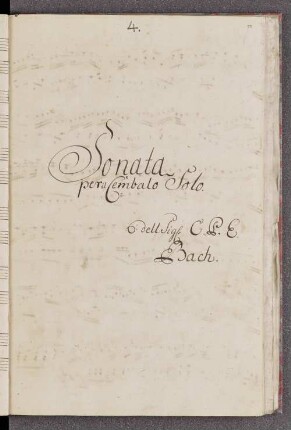 4.
Sonata
per il Cembalo Solo.
dell Sigr. C. P. E.
Bach.